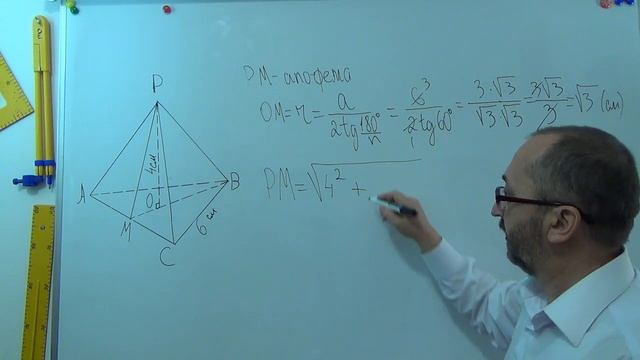 P
4см
A
O
B
M
6 см
C
PM-апофема
OM = r = a / 2tg 180°/n = 6 3 / 2 1 tg 60° = 3·√3 / √3·√3 = 3√3 / 3 = √3 (см)
PM = √4² +